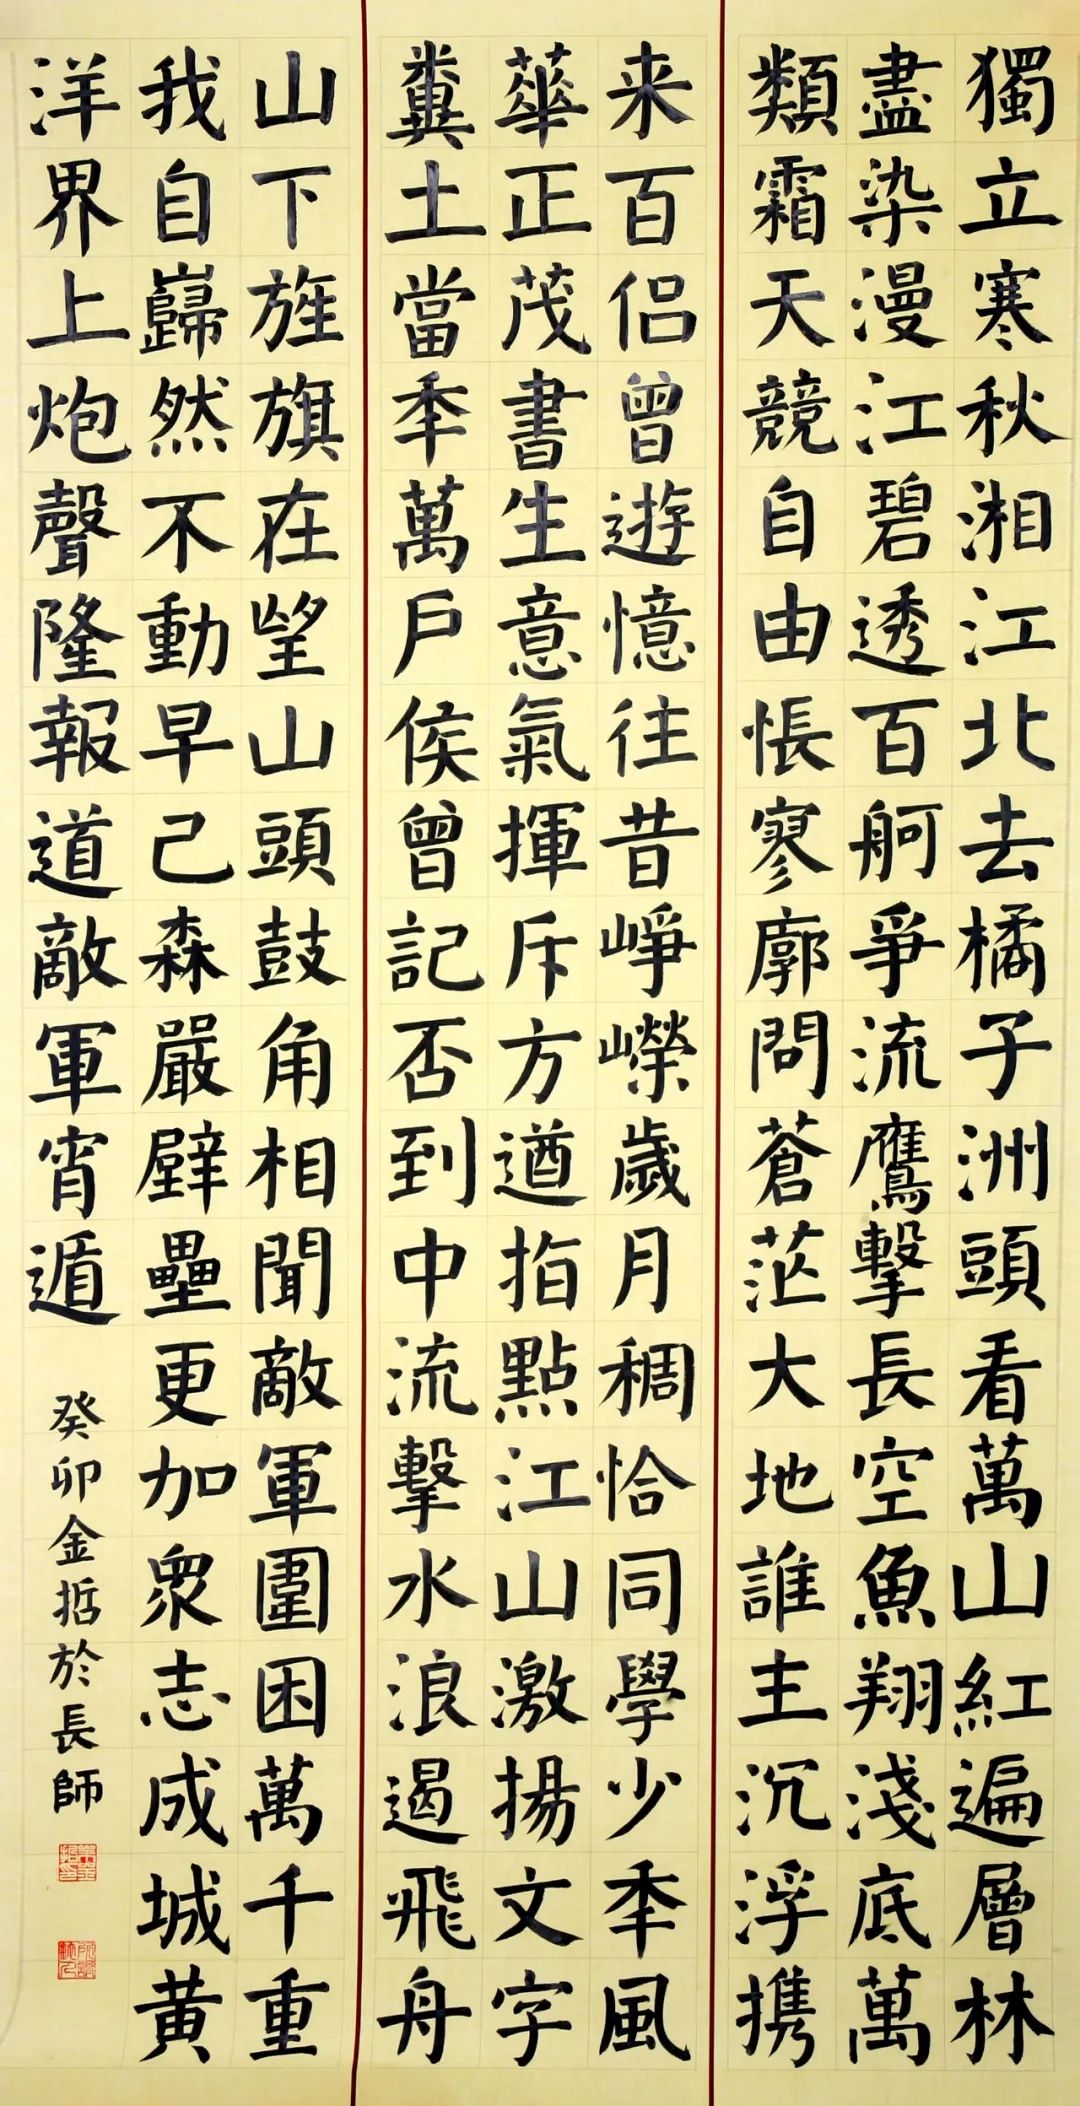 獨立寒秋湘江北去橘子洲頭看萬山紅遍層林
盡染漫江碧透百舸爭流鷹擊長空魚翔淺底萬
類霜天競自由悵寥廓問蒼茫大地誰主沉浮携
来百侶曾遊憶往昔崢嶸歲月稠恰同學少秊風
華正茂書生意氣揮斥方遒指點江山激揚文字
糞土當秊萬戶侯曾記否到中流擊水浪遏飛舟
山下旌旗在望山頭鼓角相聞敵軍圍困萬千重
我自巋然不動早己森嚴壁壘更加眾志成城黄
洋界上炮聲隆報道敵軍宵遁
癸卯金哲於長師